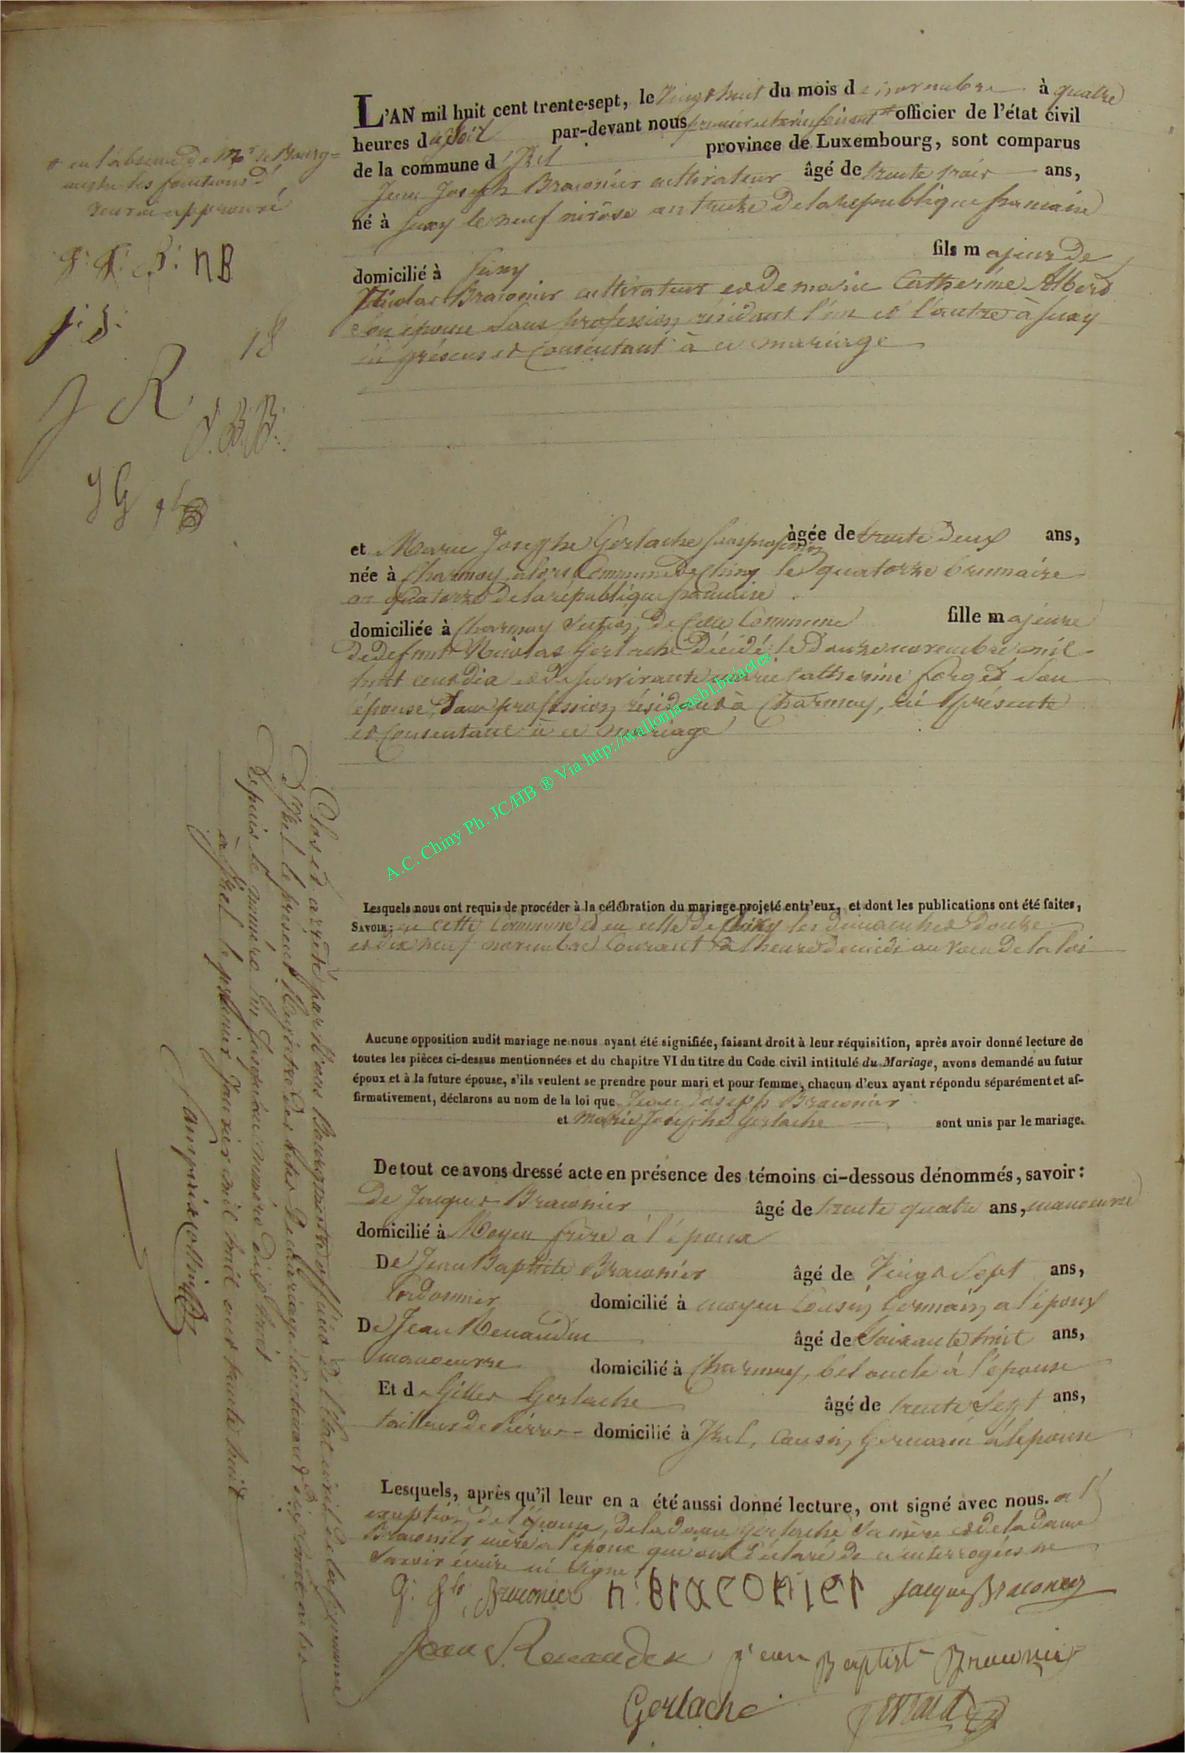 L'AN mil huit cent trente-sept, le vingt huit du mois de novembre à quatre
heures du soir par-devant nous premier officier de l'état civil
de la commune d'Izel province de Luxembourg, sont comparus
Jean Joseph Braconier cultivateur âgé de trente trois ans,
né à Suxy le neuf nivôse an treize de la republique francaise
domicilié à Suxy fils majeur de
Nicolas Braconier cultivateur et de marie Catherine Alberd
son épouse sans profession résidant l'un et l'autre à Suxy
ici présens et consentant à ce mariage
et Marie Josephe Gerlache sans profession âgée de trente deux ans,
née à Charmoy alors Commune de Chiny le quatorze brumaire
an quatorze de la république francaise
domiciliée à Charmoy section de cette Commune fille majeure
de defunt Nicolas Gerlache décédé le douze novembre mil
huit cent dix et de survivante marie catherine forget son
épouse, sans profession résidant à Charmoy, ici présente
et consentant à ce mariage
A.C. Chiny Ph. JC/HB ® Via http://wallonia-asbl.be/actes
Lesquels nous ont requis de procéder à la célébration du mariage projeté entr'eux, et dont les publications ont été faites,
SAVOIR: en cette Commune et en celle de Suxy les dimanches douze
et dix neuf novembre courant à l'heure de midi au voeu de la loi
Aucune opposition audit mariage ne nous ayant été signifiée, faisant droit à leur réquisition, après avoir donné lecture de
toutes les pièces ci-dessus mentionnées et du chapitre VI du titre du Code civil intitulé du Mariage, avons demandé au futur
époux et à la future épouse, s'ils veulent se prendre pour mari et pour femme, chacun d'eux ayant répondu séparément et af-
firmativement, déclarons au nom de la loi que Jean Joseph Braconier
et Marie Josephe Gerlache sont unis par le mariage.
De tout ce avons dressé acte en présence des témoins ci-dessous dénommés, savoir:
De Jacques Braconier âgé de trente quatre ans, manoeuvre
domicilié à Moyen frère à l'époux
De Jean Baptiste Braconier âgé de Vingt Sept ans,
Cordonnier domicilié à moyen Cousin Germain a l'époux
De Jean Renaudin âgé de Soixante huit ans,
manoeuvre domicilié à Charmoy, bel oncle à l'épouse
Et de Gilles Gerlache âgé de trente Sept ans,
tailleur de pierres domicilié à Izel, Cousin Germain à l'épouse
Lesquels, après qu'il leur en a été aussi donné lecture, ont signé avec nous. a l'
exception de l'épouse, de la dame Gerlache sa mère et de la dame
Braconier mère à l'époux qui ont déclaré de ce interrogées ne
savoir écrire ni signer
J: Jh, Braconier n: Braconier Jacques Braconier
Jean Renauden jean Baptist Braconier
Gerlache
# en l'absence de Mr. le Bourg-
mestre les fonctions d'
renvoi approuvé
J. J. B: NB
J. B. 
J R
J. B. B.
J G
Clos et arrêté par Nous Bourgmestre officier de l'état civil de la commune
d'Izel le présent Registre des actes de Mariage contenant dix huit actes
depuis le numéro un jusqu'au numéro dix huit
à Izel le premier Janvier mil huit cent trente huit